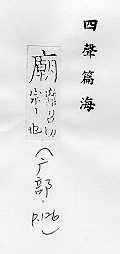 四聲篇海
廟
靡召切
宗也
(广部, p.126)